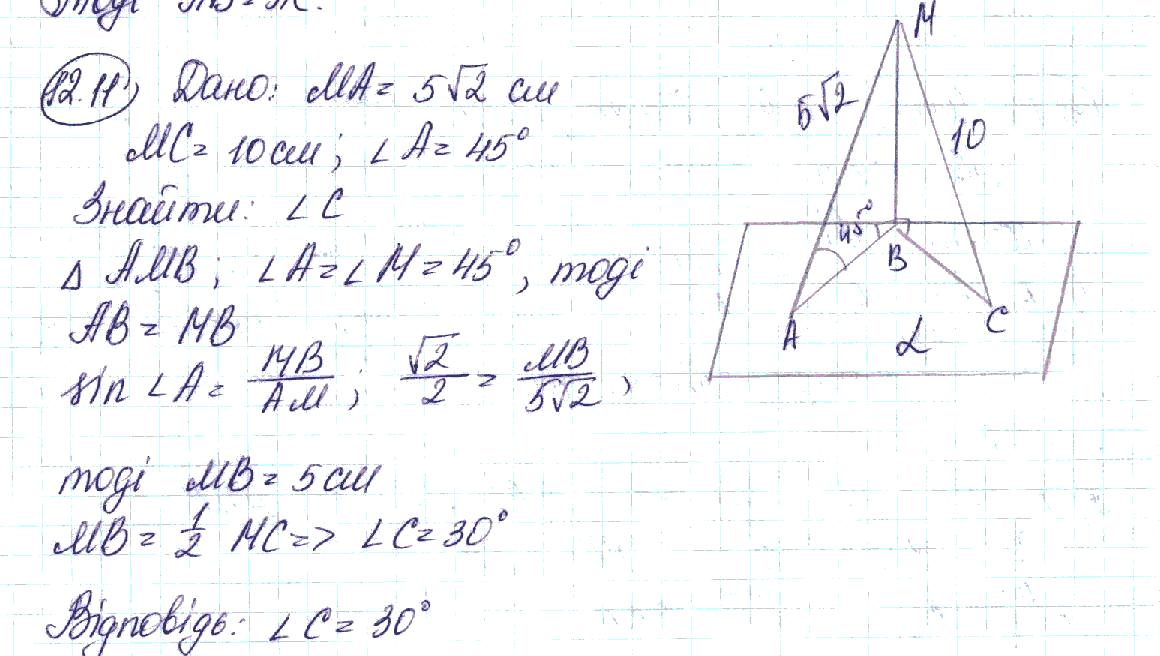 тоді
12.11, Дано: MA = 5√2 см
MC = 10 см; ∠A = 45°
Знайти: ∠C
Δ AMB; ∠A = ∠M = 45°, тоді
AB = MB
sin ∠A = MB/AM; √2/2 = MB/5√2,
тоді MB = 5 см
MB = 1/2 MC => ∠C = 30°
Відповідь: ∠C = 30°
M
5√2
10
45°
B
A
C
α